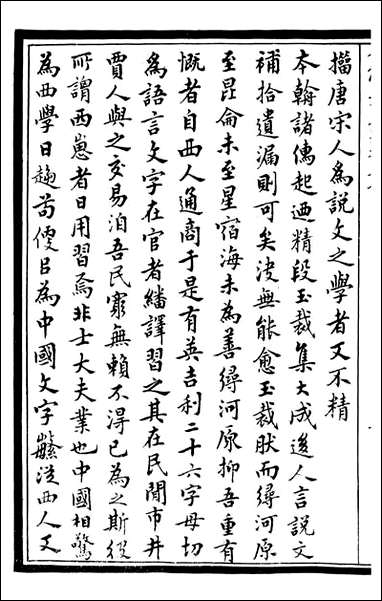 攟唐宋人為說文之學者又不精
本翰諸儒起迺精段玉裁集大成後人言說文
補拾遺漏則可矣決無能愈玉裁肰而尋河原
至昆侖未至星宿海未為善尋河原抑吾重有
慨者自西人通商于是有英吉利二十六字母切
為語言文字在官者繙譯習之其在民間市井
賈人與之交易洎吾民窮無賴不得已為之斯役
所謂西崽者日用習焉非士大夫業也中國相驚
為西學日趨苟㑯㠯為中國文字繇從西人文